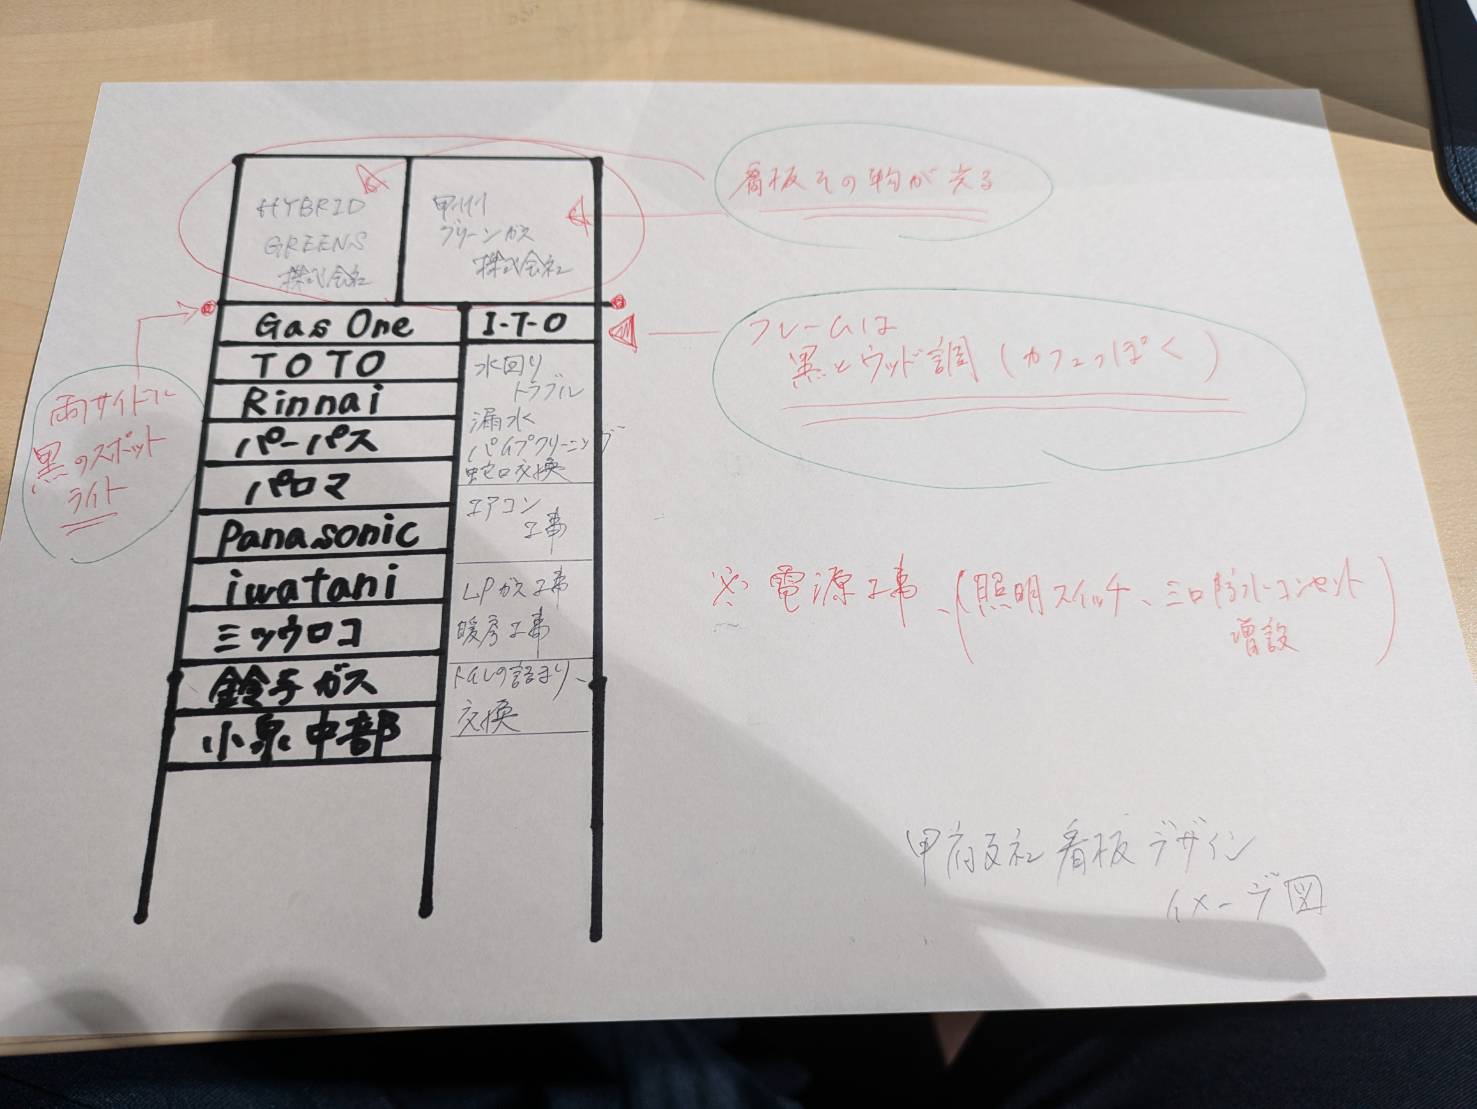 看板その物が光る
HYBRID
GREENS
株式会社
甲州
グリーンガス
株式会社
Gas One
I-T-O
フレームは
黒とウッド調(カフェっぽく)
TOTO
Rinnai
パーパス
パロマ
Panasonic
iwatani
ミツウロコ
鈴与ガス
小泉中部
水回り
トラブル
漏水
パイプクリーニング
蛇口交換
エアコン
工事
LPガス工事
暖房工事
トイレの詰まり、
交換
両サイドに
黒のスポット
ライト
※電源工事、(照明スイッチ、三口防水コンセント
増設)
甲府支社 看板デザイン
イメージ図